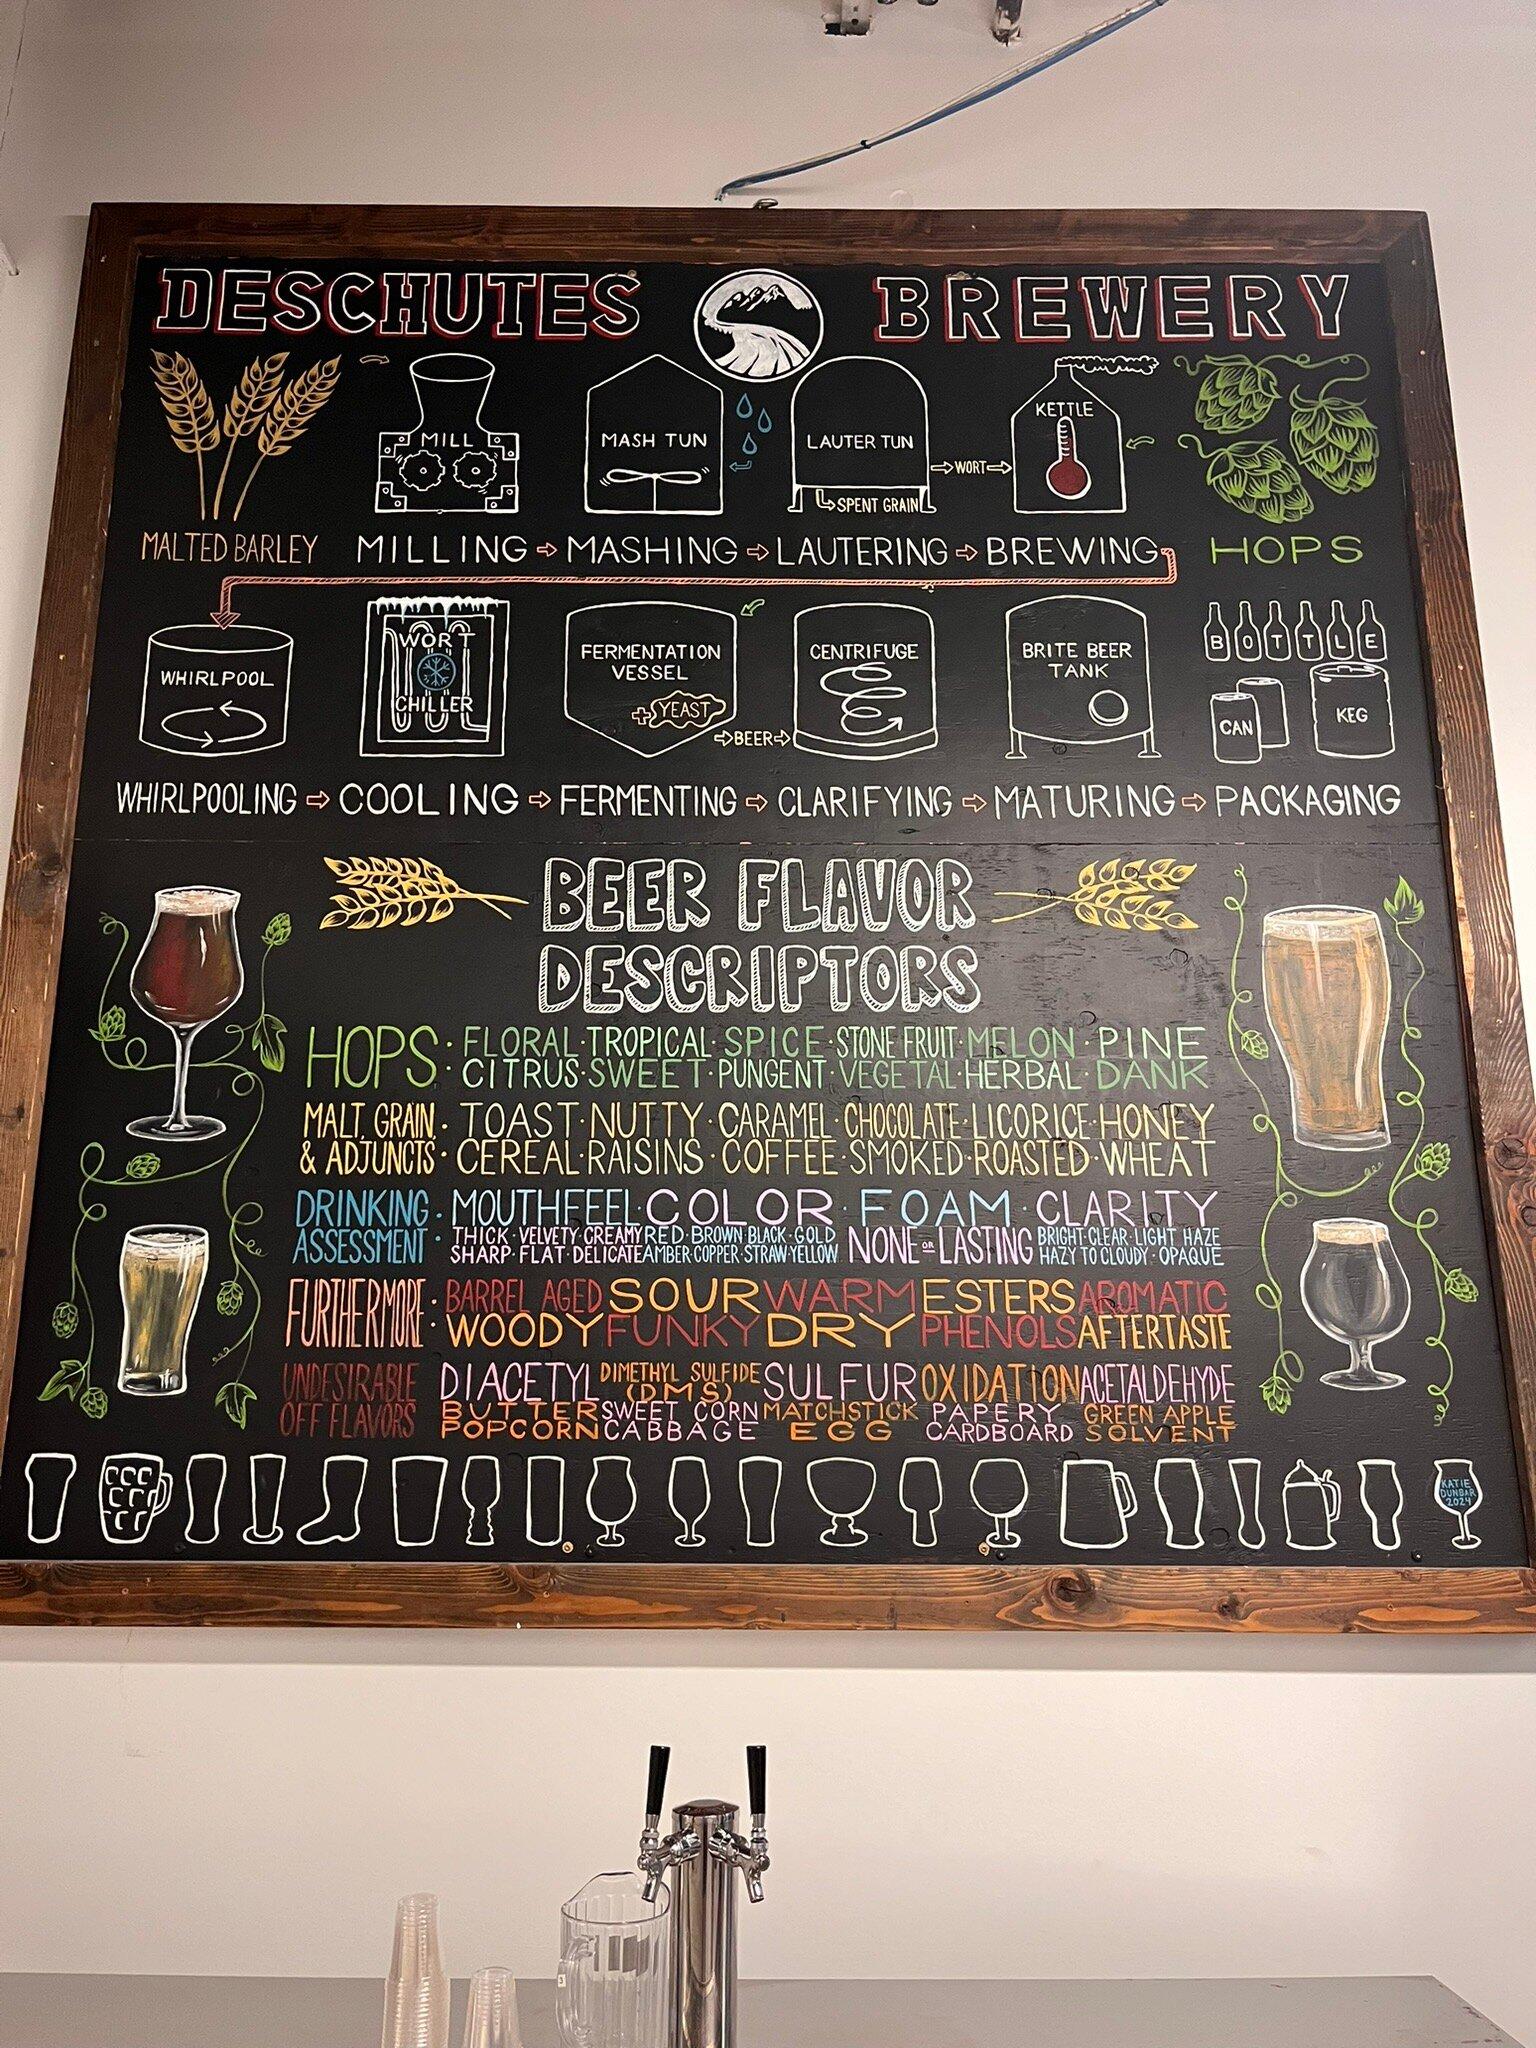 DESCHUTES BREWERY
MILL
MASH TUN
LAUTER TUN
KETTLE
WORT
SPENT GRAIN
MALTED BARLEY
MILLING MASHING LAUTERING BREWING
HOPS
WHIRLPOOL
WORT
CHILLER
FERMENTATION
VESSEL
+YEAST
BEER
CENTRIFUGE
BRITE BEER
TANK
BOTTLE
CAN
KEG
WHIRLPOOLING COOLING FERMENTING CLARIFYING MATURING PACKAGING
BEER FLAVOR
DESCRIPTORS
HOPS · FLORAL · TROPICAL · SPICE · STONE FRUIT · MELON · PINE
CITRUS · SWEET · PUNGENT · VEGETAL · HERBAL · DANK
MALT, GRAIN · TOAST · NUTTY · CARAMEL · CHOCOLATE · LICORICE · HONEY
& ADJUNCTS · CEREAL · RAISINS · COFFEE · SMOKED · ROASTED · WHEAT
DRINKING · MOUTHFEEL · COLOR · FOAM · CLARITY
ASSESSMENT
THICK · VELVETY · CREAMY
SHARP · FLAT · DELICATE
RED · BROWN · BLACK · GOLD
AMBER · COPPER · STRAW · YELLOW
NONE OR LASTING
BRIGHT · CLEAR · LIGHT HAZE
HAZY TO CLOUDY · OPAQUE
FURTHERMORE : BARREL AGED SOUR WARM ESTERS AROMATIC
WOODY FUNKY DRY PHENOLS AFTERTASTE
UNDESIRABLE
OFF FLAVORS
DIACETYL
BUTTER
POPCORN
DIMETHYL SULFIDE
(DMS)
SWEET CORN
CABBAGE
SULFUR
MATCHSTICK
EGG
OXIDATION
PAPERY
CARDBOARD
ACETALDEHYDE
GREEN APPLE
SOLVENT
KATIE
DUNBAR
2024